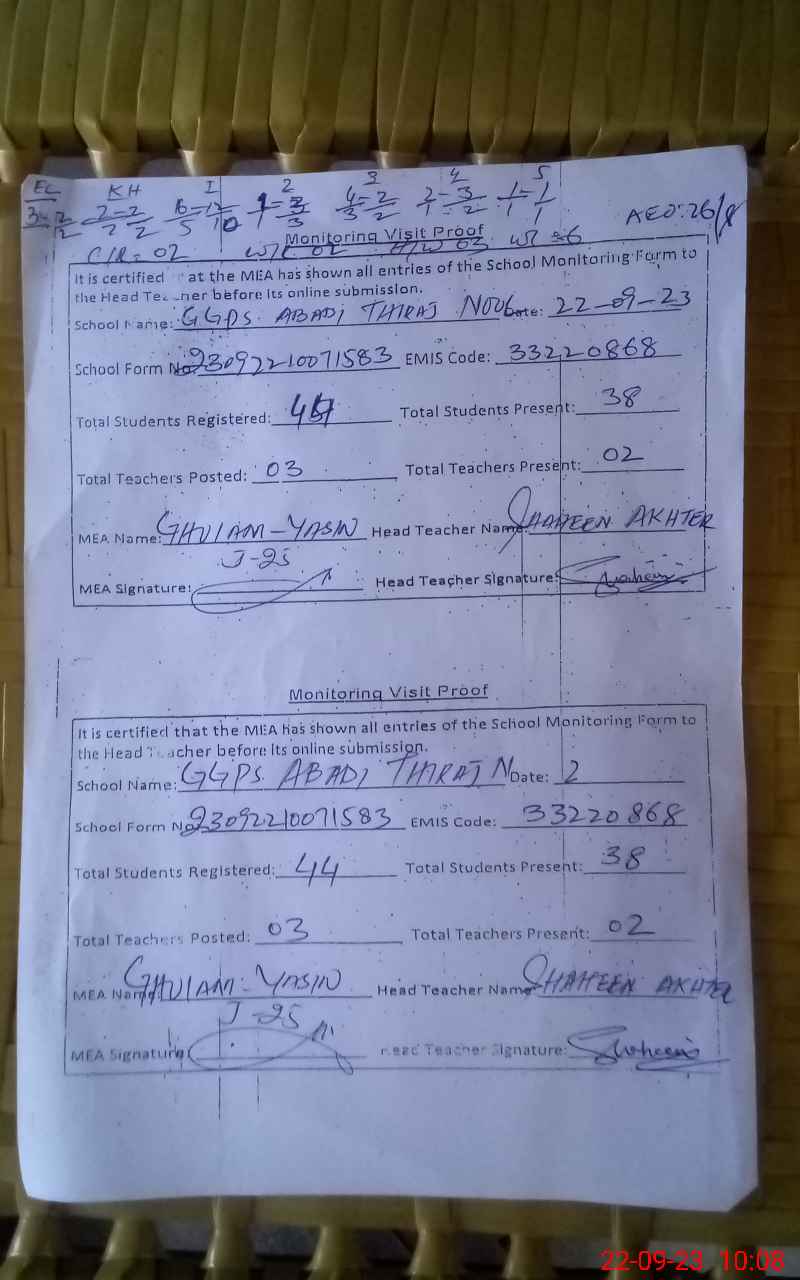 EC KH I 2 3 4 5
AEO: 26/8
C/R= 02
Monitoring Visit Proof
It is certified at the MEA has shown all entries of the School Monitoring Form to
the Head Teacher before its online submission.
School Name: GGPS. ABADI THIRAJ Date: 22-09-23
School Form No 23092210071583 EMIS Code: 33220868
Total Students Registered: Total Students Present: 38
Total Teachers Posted: 03 Total Teachers Present: 02
MEA Name: GHULAM-YASIN Head Teacher Name: SHAHEEN AKHTER
J-25
MEA Signature: Head Teacher Signature: Shaheen
Monitoring Visit Proof
It is certified that the MEA has shown all entries of the School Monitoring Form to
the Head Teacher before its online submission.
School Name: GGPS. ABADI THIRAJ N Date: 2
School Form No 23092210071583 EMIS Code: 33220868
Total Students Registered: 44 Total Students Present: 38
Total Teachers Posted: 03 Total Teachers Present: 02
MEA Name: GHULAM-YASIN Head Teacher Name SHAHEEN AKHTER
J-25
MEA Signature Head Teacher Signature: Shaheen
22-09-23 10:08